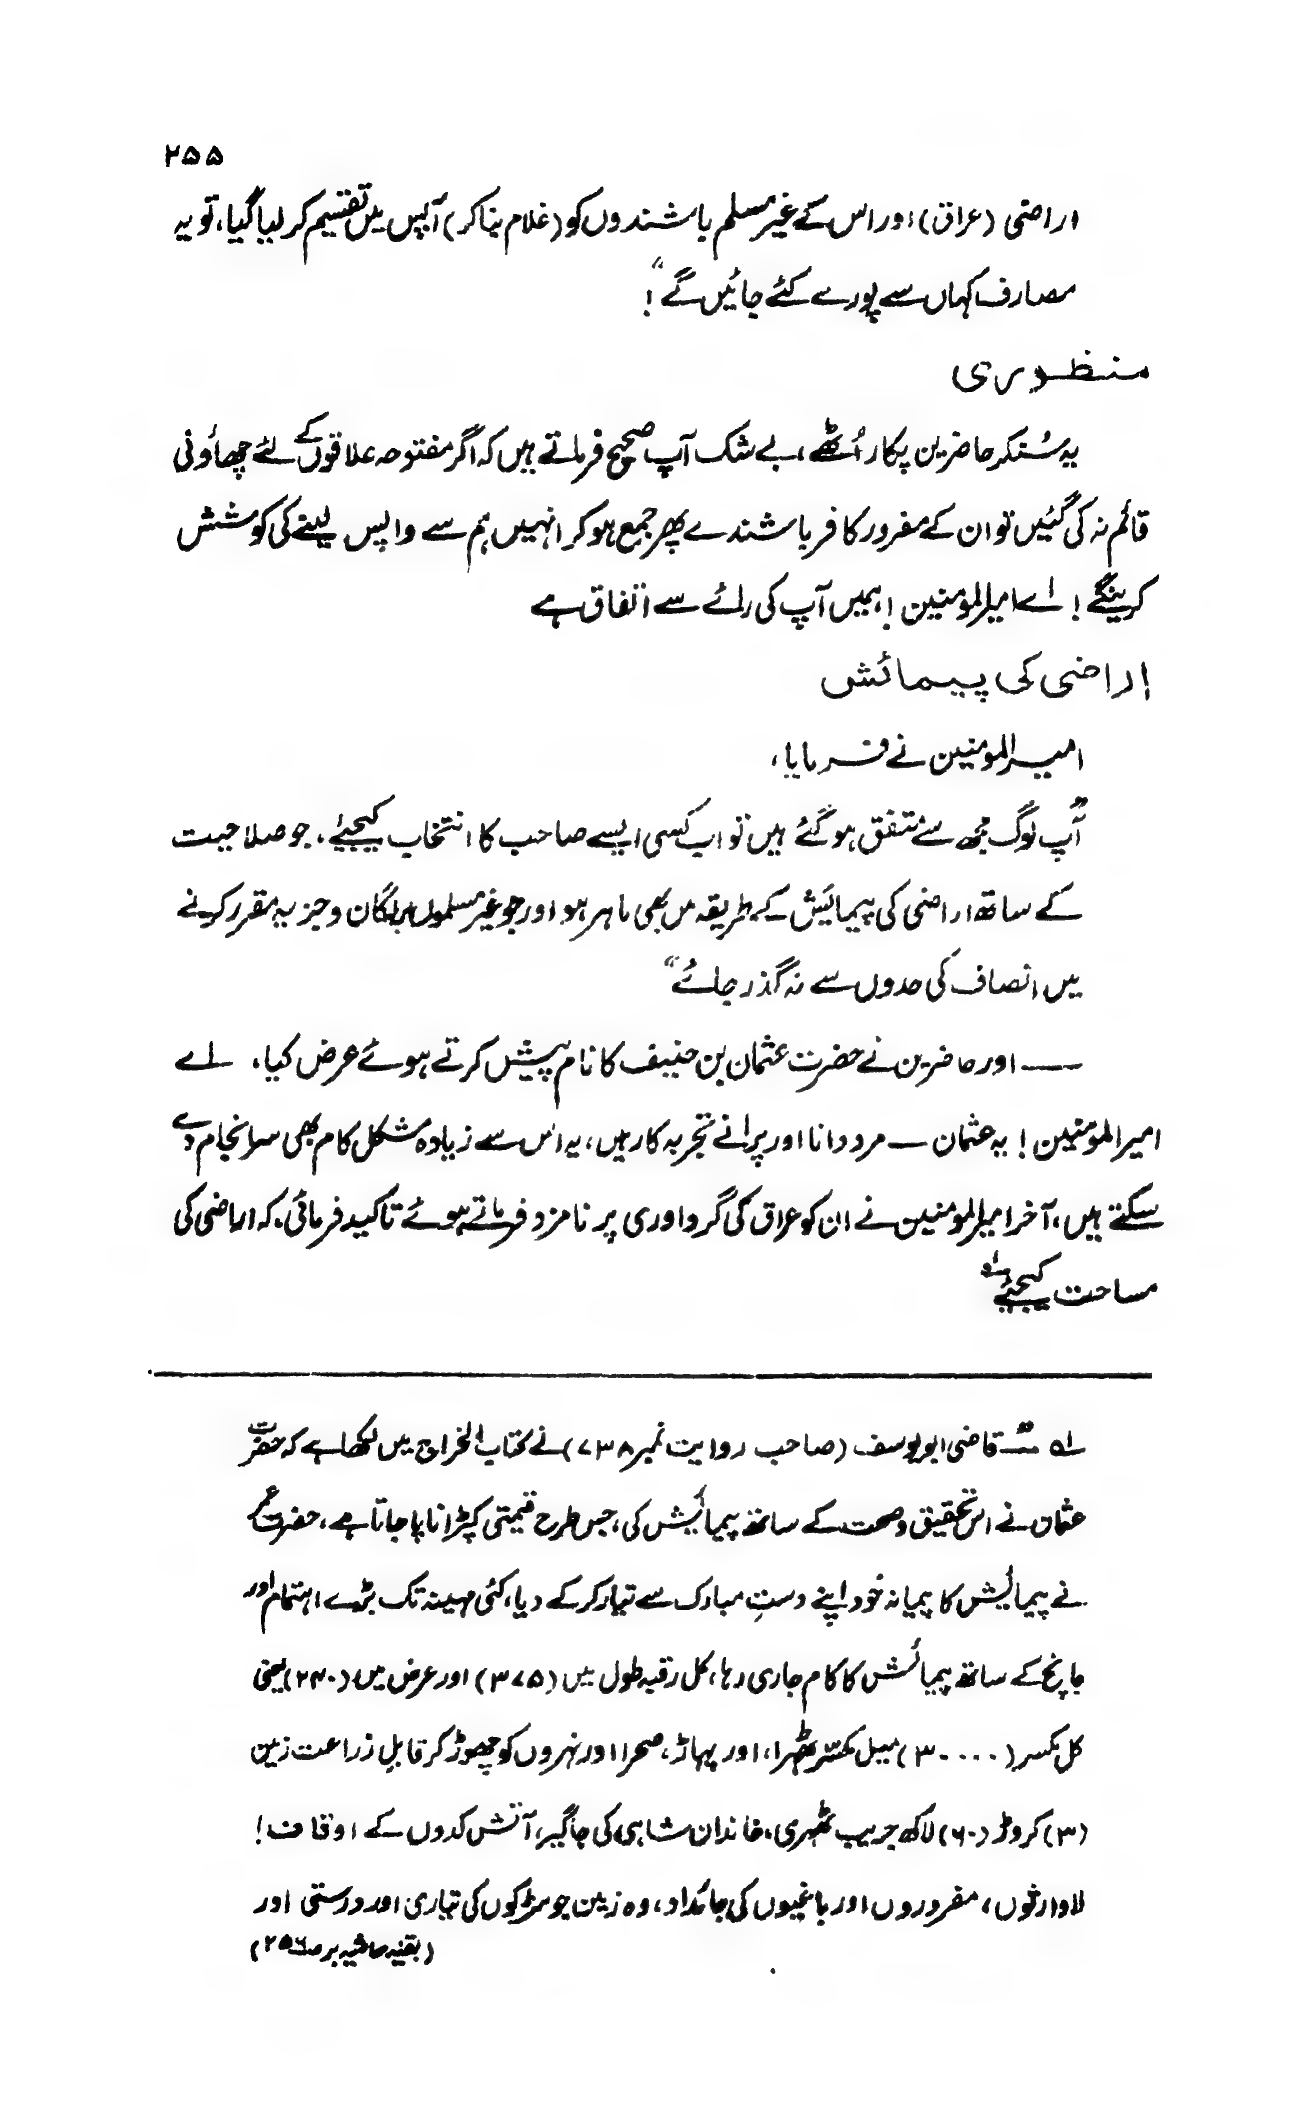 ۲۵۵
اراضی (عراق) اور اس کے غیر مسلم باشندوں کو (غلام بنا کر) آپس میں تقسیم کر لیا گیا، تو یہ
مصارف کہاں سے پورے کئے جائیں گے“!
منظوری
یہ سُنکر حاضرین پکار اُٹھے، بے شک آپ صحیح فرماتے ہیں کہ اگر مفتوحہ علاقوں کے لئے چھاؤنی
قائم نہ کی گئیں تو ان کے مفرور کافر باشندے پھر جمع ہو کر انہیں ہم سے واپس لینے کی کوشش
کرینگے! اے امیرالمومنین! ہمیں آپ کی رائے سے اتفاق ہے
اراضی کی پیمائش
امیرالمومنین نے فرمایا،
”آپ لوگ مجھ سے متفق ہو گئے ہیں تو اب کسی ایسے صاحب کا انتخاب کیجئے، جو صلاحیت
کے ساتھ اراضی کی پیمائش کے طریقہ میں بھی ماہر ہو اور جو غیر مسلموں پر لگان و جزیہ مقرر کرنے
میں انصاف کی حدوں سے نہ گذر جائے“
—— اور حاضرین نے حضرت عثمان بن حنیف کا نام پیش کرتے ہوئے عرض کیا، اے
امیرالمومنین! یہ عثمان — مرد دانا اور پرانے تجربہ کار ہیں، یہ اس سے زیادہ مشکل کام بھی سرانجام دے
سکتے ہیں، آخر امیرالمومنین نے ان کو عراق کی گرداوری پر نامزد فرماتے ہوئے تاکید فرمائی، کہ اراضی کی
مساحت کیجئے
قاضی ابو یوسف (صاحب روایت نمبر ۷۳۸) نے کتاب الخراج میں لکھا ہے کہ حضرت
عثمان نے اس تحقیق و صحت کے ساتھ پیمائش کی، جس طرح قیمتی کپڑا ناپا جاتا ہے، حضرت عمر
نے پیمائش کا پیمانہ خود اپنے دستِ مبارک سے تیار کر کے دیا، کئی مہینہ تک بڑے اہتمام اور
جانچ کے ساتھ پیمائش کا کام جاری رہا، کل رقبہ طول میں (۳۷۵) اور عرض میں (۲۴۰) یعنی
کل مکسر (۳۰۰۰۰) میل مکسّر ٹھہرا، اور پہاڑ، صحرا اور نہروں کو چھوڑ کر قابلِ زراعت زمین
(۳) کروڑ (۶۰) لاکھ جریب ٹھہری، خاندان شاہی کی جاگیر، آتش کدوں کے اوقاف!
لاوارثوں، مفروروں اور باغیوں کی جائداد، وہ زمین جو سڑکوں کی تیاری اور درستی اور
(بقیہ حاشیہ بر صـ۲۵۶)